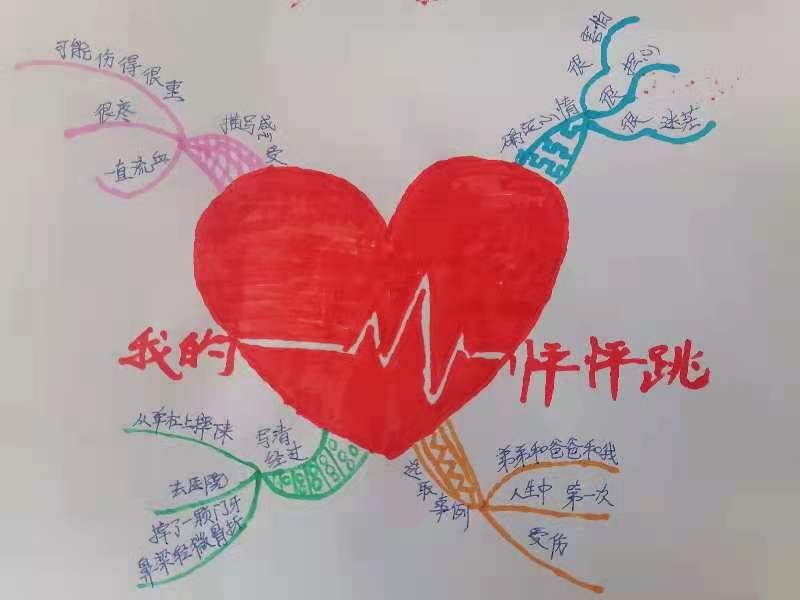 可能伤得很重
很疼
一直流血
描写感受
确定心情
很害怕
很担心
很迷茫
我的 怦怦跳
写清经过
从单杠上摔下来
去医院
掉了一颗门牙
鼻梁轻微骨折
选取事例
弟弟和爸爸和我
人生中 第一次
受伤